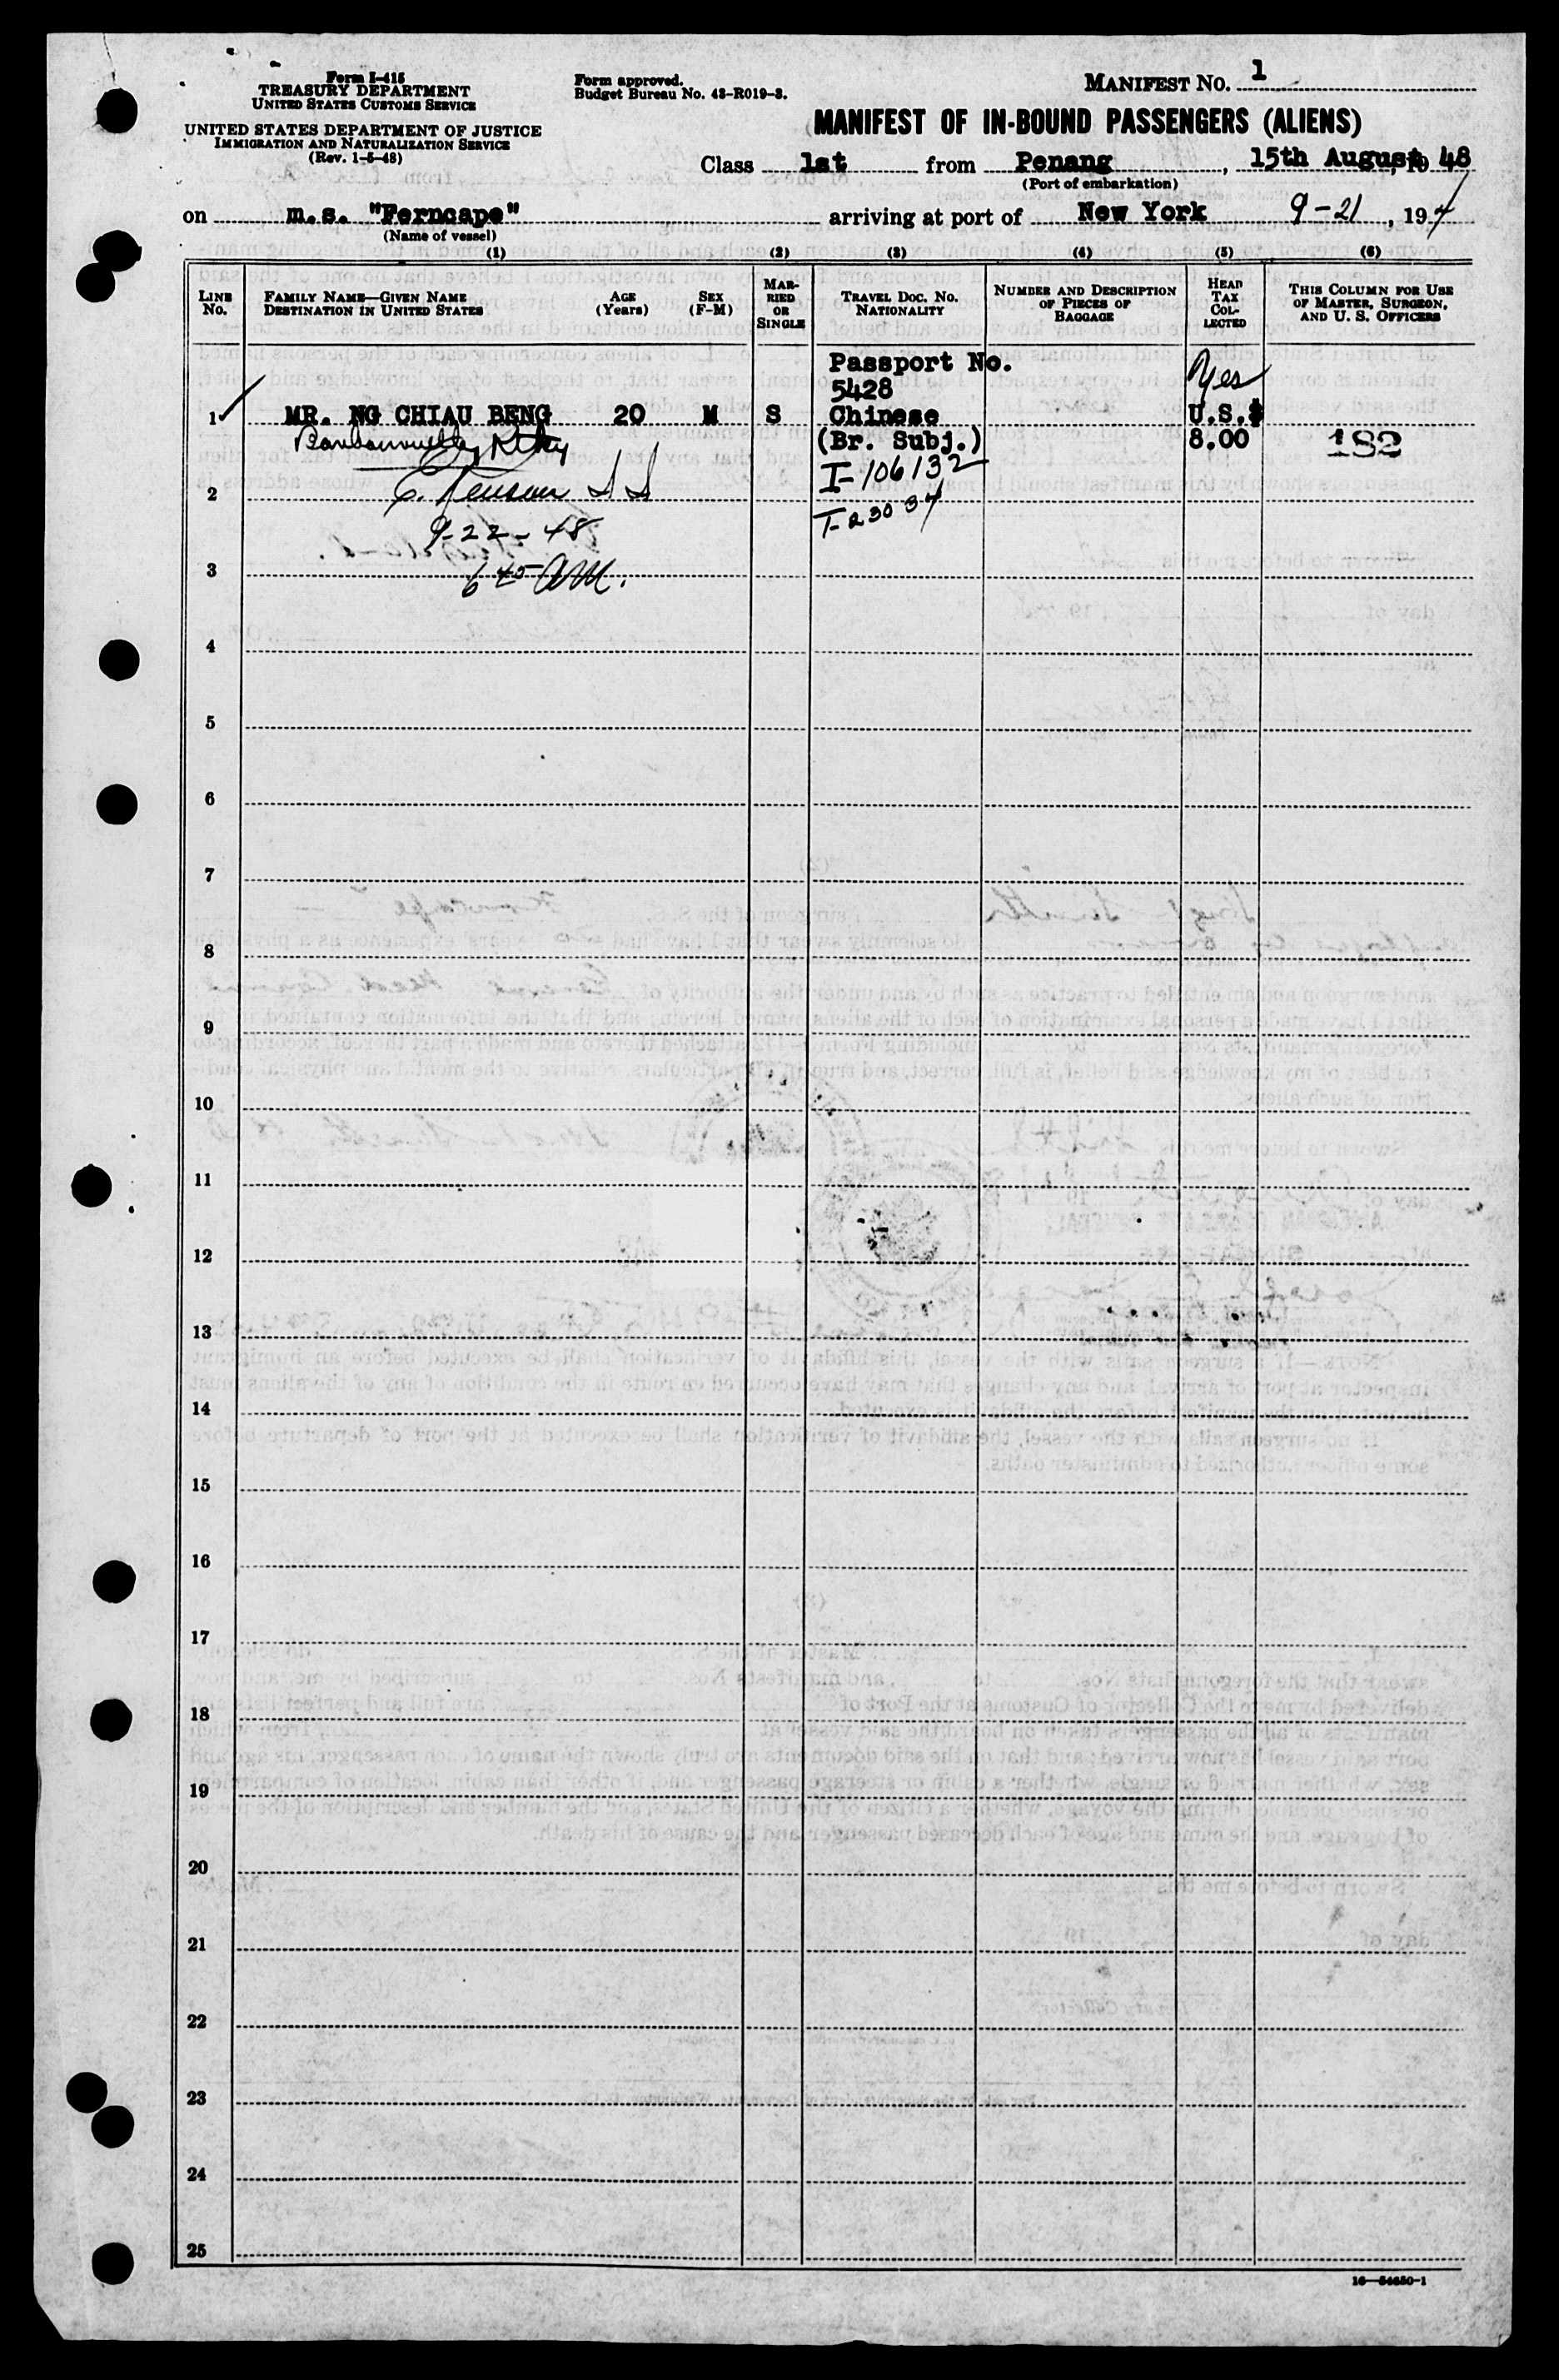 Form I-415
TREASURY DEPARTMENT
UNITED STATES CUSTOMS SERVICE
UNITED STATES DEPARTMENT OF JUSTICE
IMMIGRATION AND NATURALIZATION SERVICE
(Rev. 1-5-48)
Form approved.
Budget Bureau No. 43-R019-3.
MANIFEST NO. 1
MANIFEST OF IN-BOUND PASSENGERS (ALIENS)
Class 1st from Penang, 15th August, 19 48
(Port of embarkation)
on m.s. "Ferncape" arriving at port of New York 9-21, 194
(Name of vessel)
(1) (2) (3) (4) (5) (6)
LINE No.
FAMILY NAME—GIVEN NAME
DESTINATION IN UNITED STATES
AGE (Years)
SEX (F-M)
MARRIED OR SINGLE
TRAVEL DOC. NO.
NATIONALITY
NUMBER AND DESCRIPTION OF PIECES OF BAGGAGE
HEAD TAX COLLECTED
THIS COLUMN FOR USE OF MASTER, SURGEON, AND U. S. OFFICERS
Passport No.
5428
Yes
1 MR. NG CHIAU BENG 20 M S Chinese U.S.$
Barbourville, Ktky (Br. Subj.) 8.00 182
I-106132
2
T-23034
9-22-48
3
6 45 AM.
4
5
6
7
8
9
10
11
12
13
14
15
16
17
18
19
20
21
22
23
24
25
16—54650-1